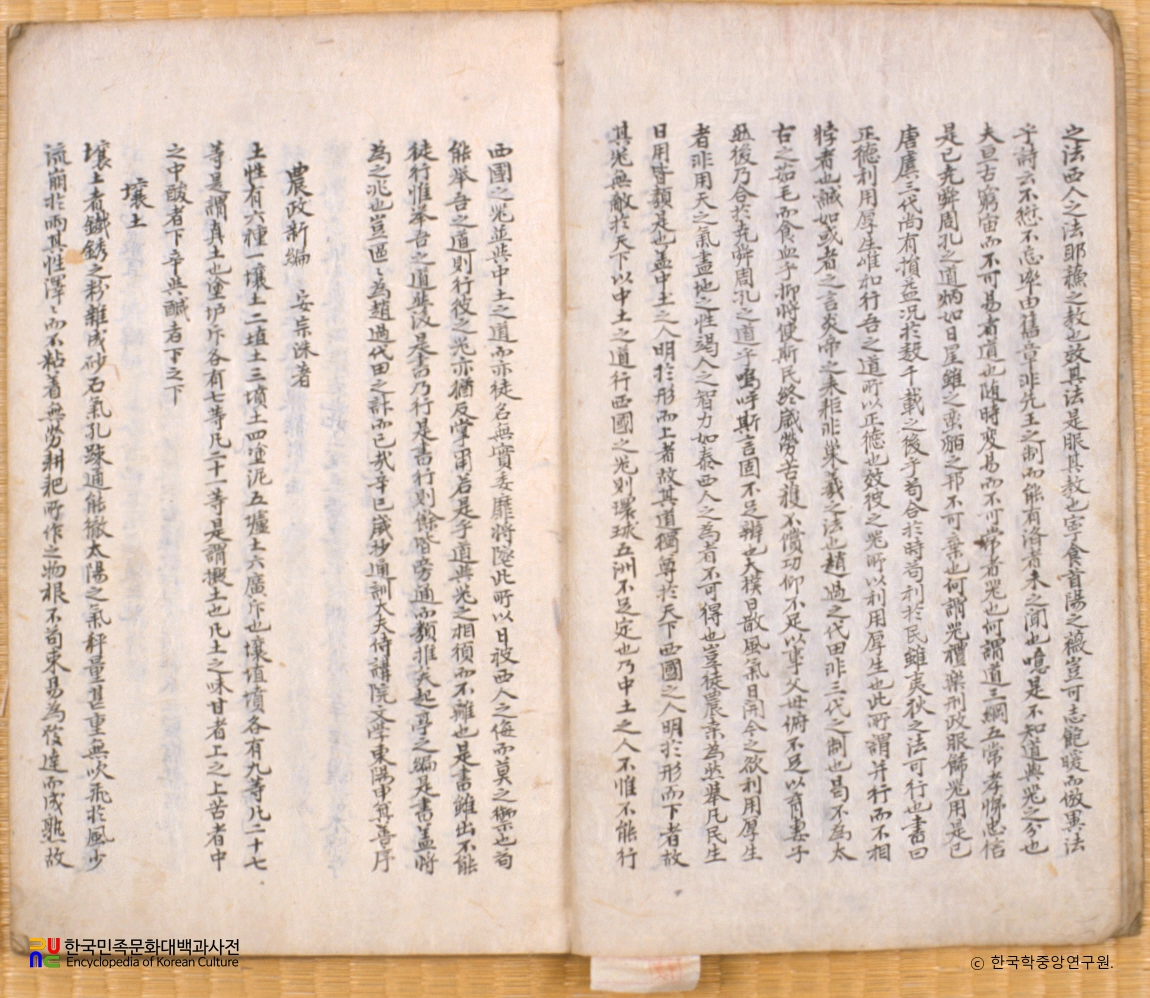 之法西人之法耶穌之教也效其法是服其教也寧食首陽之薇豈可志飽暖而倣異法
乎詩云不愆不忘率由舊章非先王之制而能有濟者未之聞也噫是不知道與器之分也
夫亘古窮宙而不可易者道也随時変易而不可常者器也何謂道三綱五常孝悌忠信
是已尭舜周孔之道炳如日星雖之蛮貊之邦不可棄也何謂器禮樂刑政服飾器用是已
唐虞三代尚有損益况於数千載之後乎苟合於時苟利於民雖夷狄之法可行也書曰
正徳利用厚生惟和行吾之道所以正徳也效彼之器所以利用厚生也此所謂并行而不相
悖者也誠如或者之言炎帝之耒耟非巢羲之法也趙過之代田非三代之制也曷不為太
古之茹毛而食血乎抑将使斯民終歳勞苦複不償功仰不足以事父母俯不足以育妻子
然後乃合於尭舜周孔之道乎嗚呼斯言固不足辨也大樸日散風氣日開今之欲利用厚生
者非用天之氣盡地之性竭人之智力如泰西人之為者不可得也豈徒農業為然舉凡民生
日用皆類是也盖中土之人明於形而上者故其道獨尊於天下西國之人明於形而下者故
其器無敵於天下以中土之道行西國之器則環球五洲不足定也乃中土之人不惟不能行
西國之器並與中土之道而亦徒名無實委靡将墜此所以日被西人之侮而莫之禦也苟
能舉吾之道則行彼之器亦猶反掌甫若是乎道與器之相須而不離也是書雖出不能
徒行惟舉吾之道然後是書乃行是書行則條階旁通而類推夫起亭之編是書盖将
為之兆也豈區〻為趙過代田之計而已哉辛巳歳杪通訓大夫侍講院文學東陽申箕善序
農政新編 安宗洙著
土性有六種一壤土二埴土三墳土四塗泥五壚土六廣斥也壤埴墳各有九等凢二十七
等是謂真土也塗垆斥各有七等凢二十一等是謂擬土也凢土之味甘者上之上苦者中
之中酸者下辛與鹹者下之下
壤土
壤土者鐵銹之粉雜成砂石氣孔踈通能徹太陽之氣秤量甚重無吹飛於風少
流崩於雨其性澤〻而不粘着無勞耕耙所作之物根不苟束易為發達而成熟故